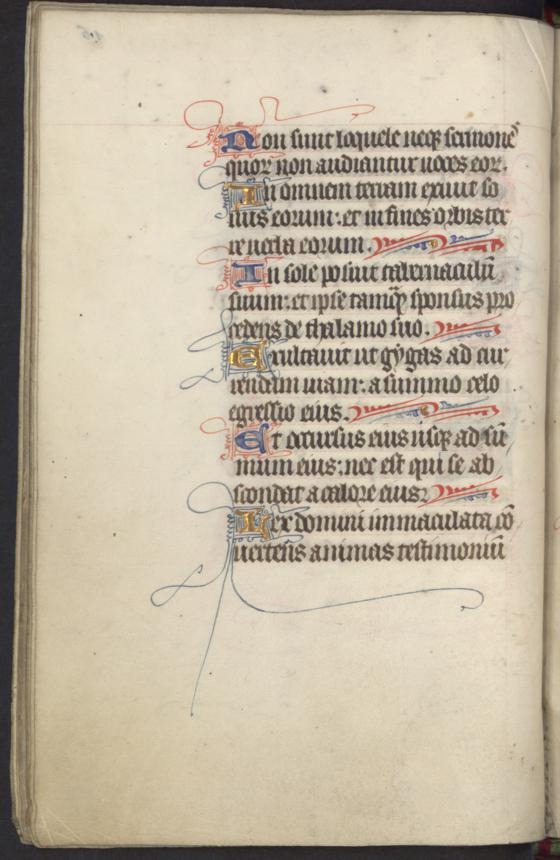 Non sunt loquele neqꝫ sermonē
quor non audiantur uoces eor.
In omnem terram exiuit so
nus eorum: et in fines orbis ter
re uerba eorum.
In sole posuit tabernaculū
suum: et ipse tamqȝ sponsus pro
cedens de thalamo suo.
Exultauit ut gygas ad cur
rendam uiam: a summo celo
egressio eius.
Et occursus eius usqꝫ ad sū
mum eius: nec est qui se ab
scondat a calore eius
Lex domini immaculata cō
uertens animas testimoniū